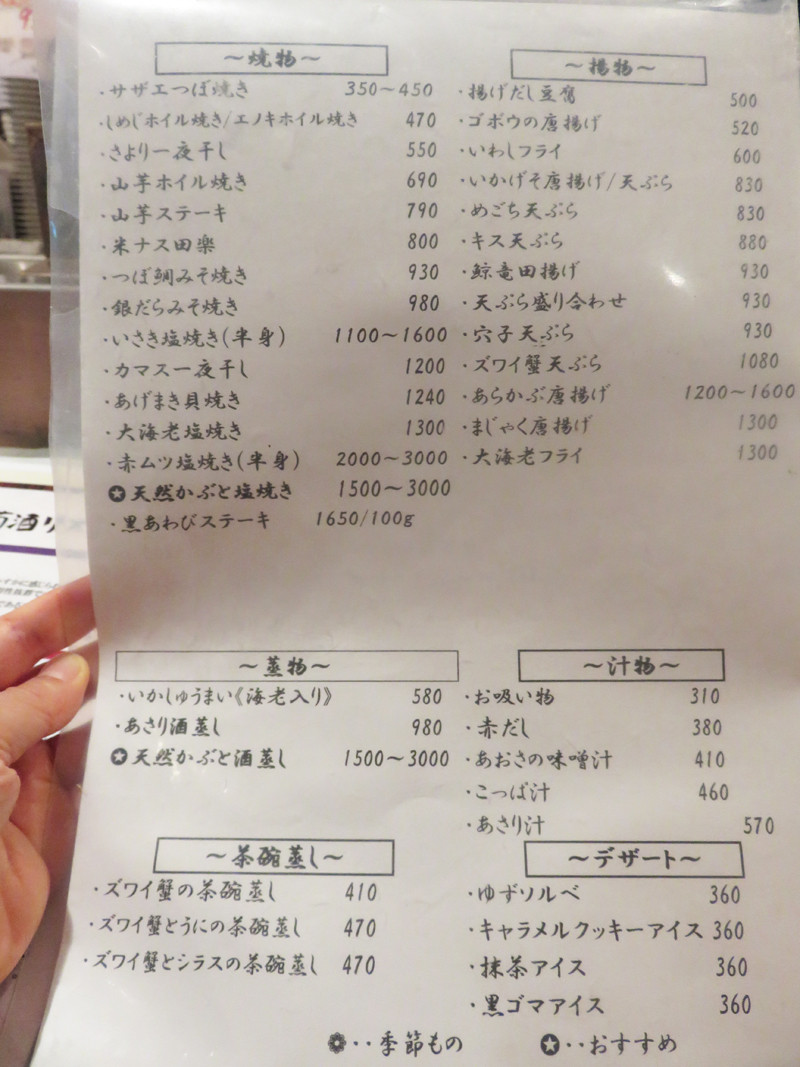 ～焼物～
・サザエつぼ焼き 350～450
・しめじホイル焼き/エノキホイル焼き 470
・さより一夜干し 550
・山芋ホイル焼き 690
・山芋ステーキ 790
・米ナス田楽 800
・つぼ鯛みそ焼き 930
・銀だらみそ焼き 980
・いさき塩焼き(半身) 1100～1600
・カマス一夜干し 1200
・あげまき貝焼き 1240
・大海老塩焼き 1300
・赤ムツ塩焼き(半身) 2000～3000
✪天然かぶと塩焼き 1500～3000
・黒あわびステーキ 1650/100g
～揚物～
・揚げだし豆腐 500
・ゴボウの唐揚げ 520
・いわしフライ 600
・いかげそ唐揚げ/天ぷら 830
・めごち天ぷら 830
・キス天ぷら 880
・鯨竜田揚げ 930
・天ぷら盛り合わせ 930
・穴子天ぷら 930
・ズワイ蟹天ぷら 1080
・あらかぶ唐揚げ 1200～1600
・まじゃく唐揚げ 1300
・大海老フライ 1300
～蒸物～
・いかしゅうまい《海老入り》 580
・あさり酒蒸し 980
✪天然かぶと酒蒸し 1500～3000
～汁物～
・お吸い物 310
・赤だし 380
・あおさの味噌汁 410
・こっぱ汁 460
・あさり汁 570
～茶碗蒸し～
・ズワイ蟹の茶碗蒸し 410
・ズワイ蟹とうにの茶碗蒸し 470
・ズワイ蟹とシラスの茶碗蒸し 470
～デザート～
・ゆずソルベ 360
・キャラメルクッキーアイス 360
・抹茶アイス 360
・黒ゴマアイス 360
❁‥季節もの ✪‥おすすめ